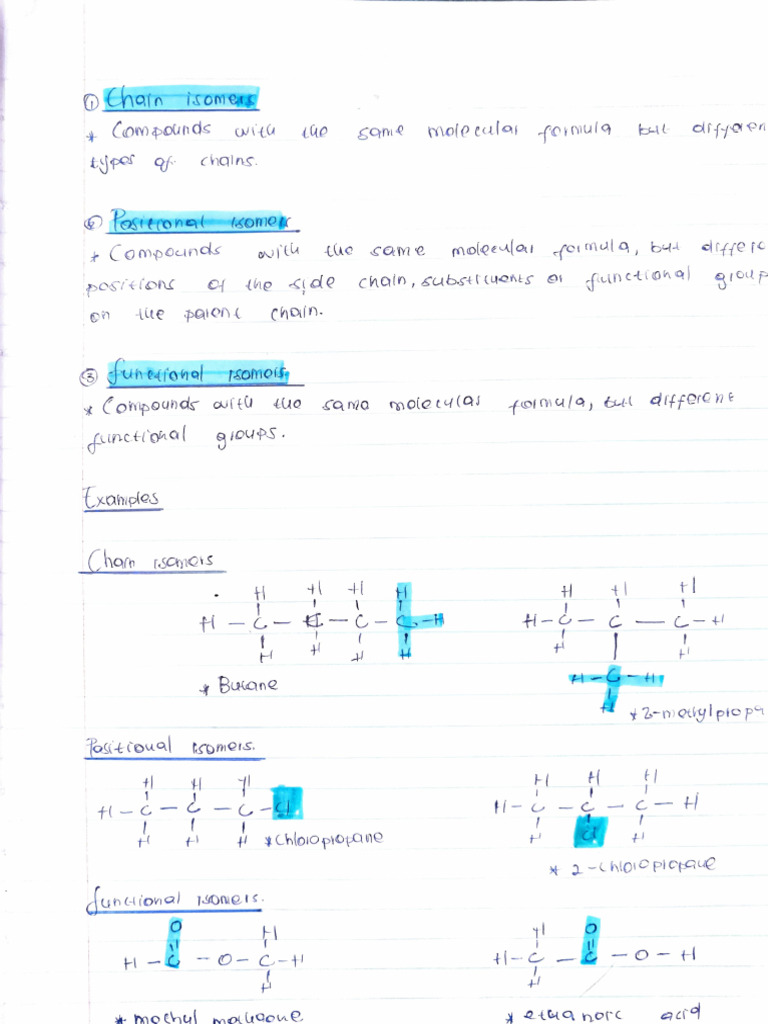 ① Chain isomers
* Compounds with the same molecular formula but differen
types of chains.
② Positional isomers
* Compounds with the same molecular formula, but differe
positions of the side chain, substituents or functional group
on the parent chain.
③ functional isomers
* Compounds with the same molecular formula, but different
functional groups.
Examples
Chain isomers
H H H H H H H
H - C - C - C - C - H H - C - C - C - H
H H H H H H
H - C - H
* Butane H
* 2-methylpropa
Positional isomers.
H H H H H H
H - C - C - C - Cl H - C - C - C - H
H H H H Cl H
* Chloropropane
* 2-chloropropane
functional isomers.
O H H O
H - C - O - C - H H - C - C - O - H
H H
* ethanoic acid